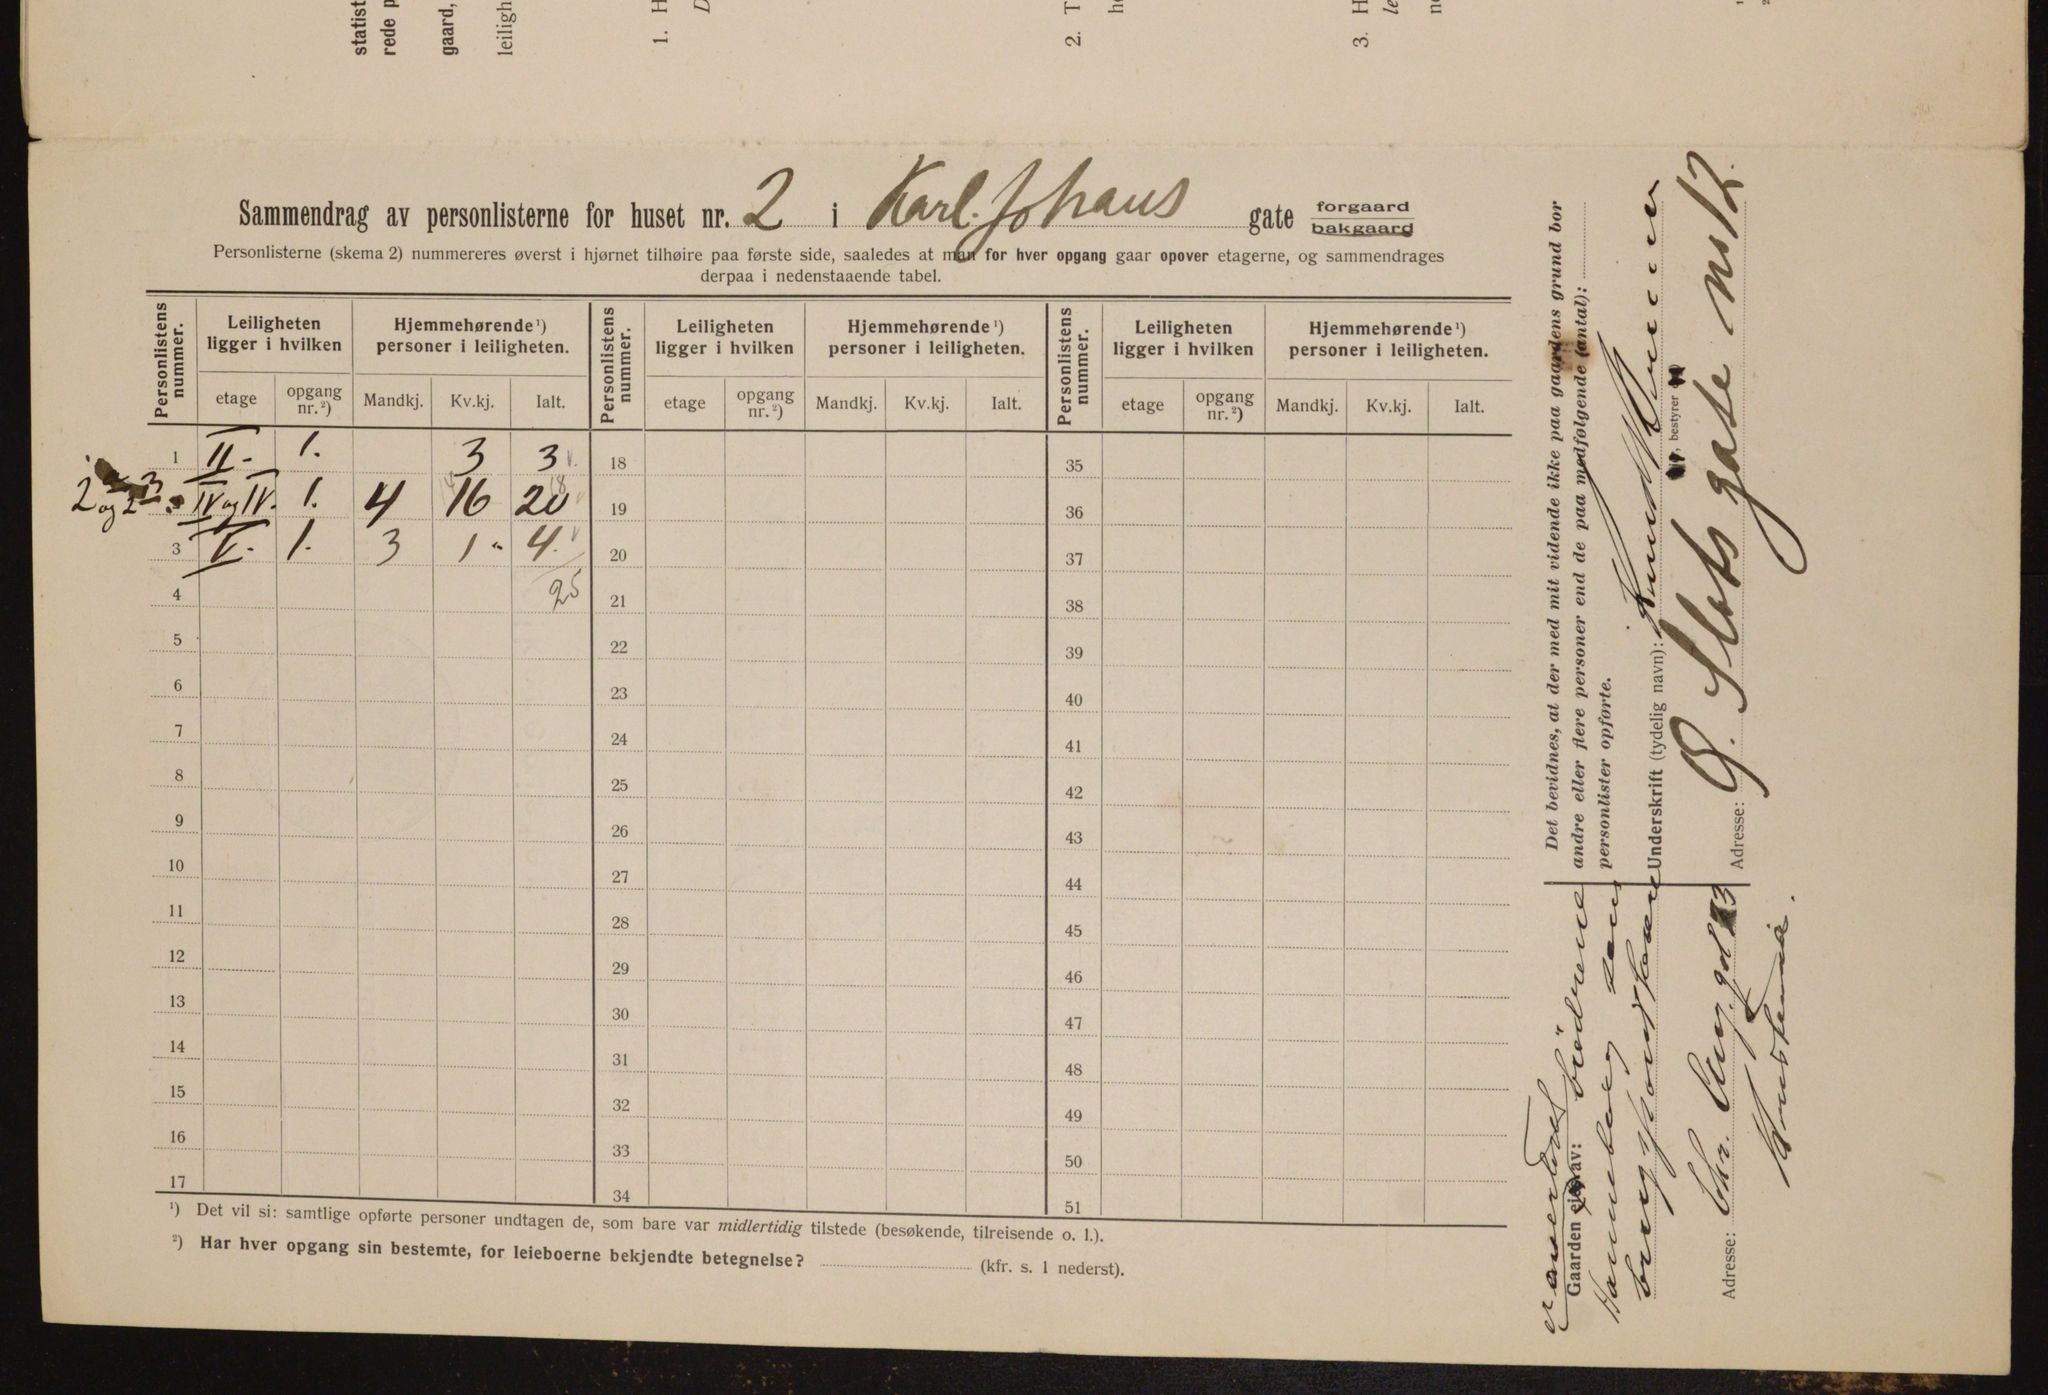 statist
rede p
gaard,
leiligh
1. H
D
2. T
he
3. H
le
n
Sammendrag av personlisterne for huset nr. 2 i Karl Johans gate forgaard
bakgaard
Personlisterne (skema 2) nummereres øverst i hjørnet tilhøire paa første side, saaledes at man for hver opgang gaar opover etagerne, og sammendrages
derpaa i nedenstaaende tabel.
Personlistens nummer. Leiligheten ligger i hvilken Hjemmehørende ¹) personer i leiligheten. Personlistens nummer. Leiligheten ligger i hvilken Hjemmehørende ¹) personer i leiligheten. Personlistens nummer. Leiligheten ligger i hvilken Hjemmehørende ¹) personer i leiligheten.
etage opgang nr.²) Mandkj. Kv.kj. Ialt. etage opgang nr.²) Mandkj. Kv.kj. Ialt. etage opgang nr.²) Mandkj. Kv.kj. Ialt.
1 II. 1. 3 3 18 35
2 og 2 IV og IV. 1. 4 16 20 19 36
3 V. 1. 3 1 4. 20 37
4 25 21 38
5 22 39
6 23 40
7 24 41
8 25 42
9 26 43
10 27 44
11 28 45
12 29 46
13 30 47
14 31 48
15 32 49
16 33 50
17 34 51
¹) Det vil si: samtlige opførte personer undtagen de, som bare var midlertidig tilstede (besøkende, tilreisende o. l.).
²) Har hver opgang sin bestemte, for leieboerne bekjendte betegnelse? (kfr. s. 1 nederst).
Det bevidnes, at der med mit vidende ikke paa gaardens grund bor
andre eller flere personer end de paa medfølgende (antal):
personlister opførte.
Underskrift (tydelig navn):
bestyrer
Adresse: Ø. Slots gate no 12.
Gaarden eies av: brødrene
Adresse: Chr. Aug gd 13
Kristiania.